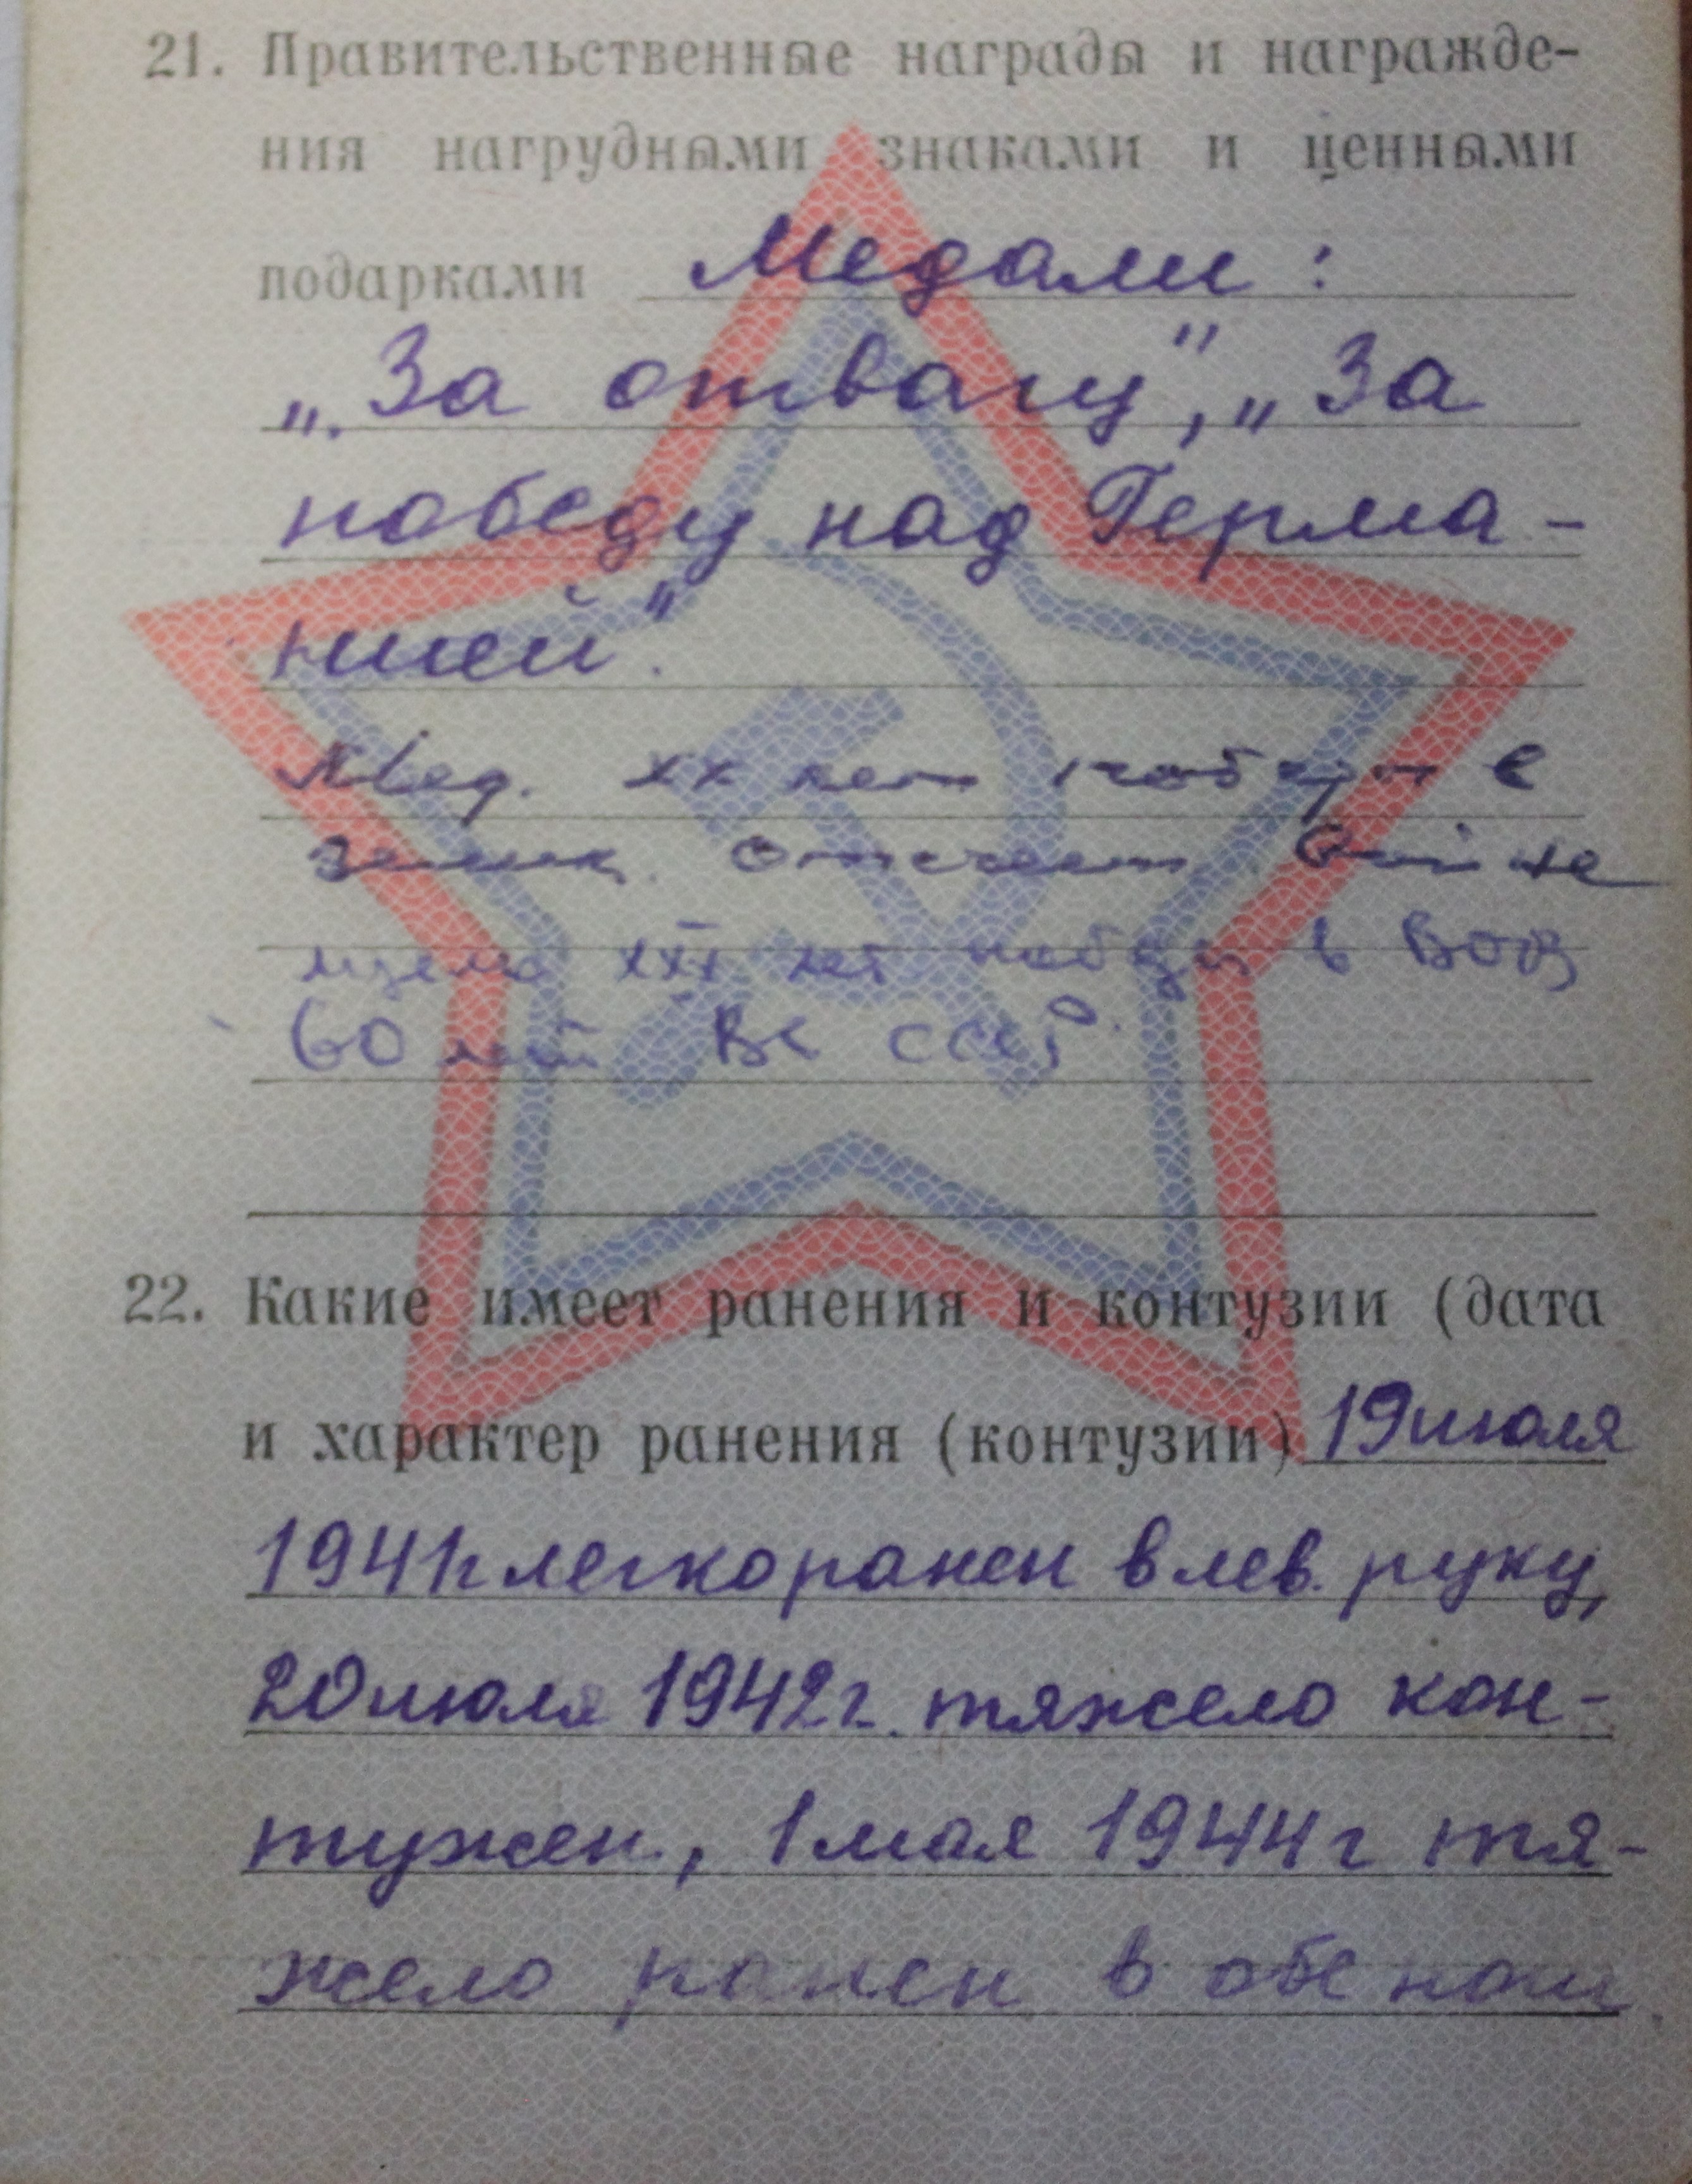 21. Правительственные награды и награжде-
ния нагрудными знаками и ценными
подарками Медали:
„За отвагу", „За
победу над Герма-
нией".
Мед. XX лет победы в
Отечест. Войне
XXX лет победы в ВОВ
60 лет ВС СССР
22. Какие имеет ранения и контузии (дата
и характер ранения (контузии) 19 июля
1941г легко ранен в лев. руку,
20 июля 1942г. тяжело кон-
тужен, 1 мая 1944г тя-
жело ранен в обе ноги